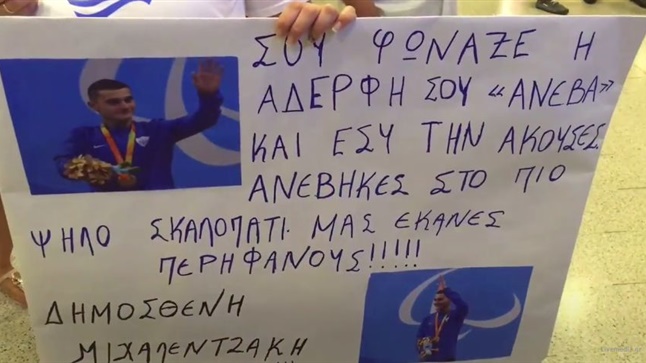 ΣΟΥ ΦΩΝΑΖΕ Η
ΑΔΕΡΦΗ ΣΟΥ «ΑΝΕΒΑ»
ΚΑΙ ΕΣΥ ΤΗΝ ΑΚΟΥΣΕΣ
ΑΝΕΒΗΚΕΣ ΣΤΟ ΠΙΟ
ΨΗΛΟ ΣΚΑΛΟΠΑΤΙ. ΜΑΣ ΕΚΑΝΕΣ
ΠΕΡΗΦΑΝΟΥΣ!!!!!
ΔΗΜΟΣΘΕΝΗ
ΜΙΧΑΛΕΝΤΖΑΚΗ